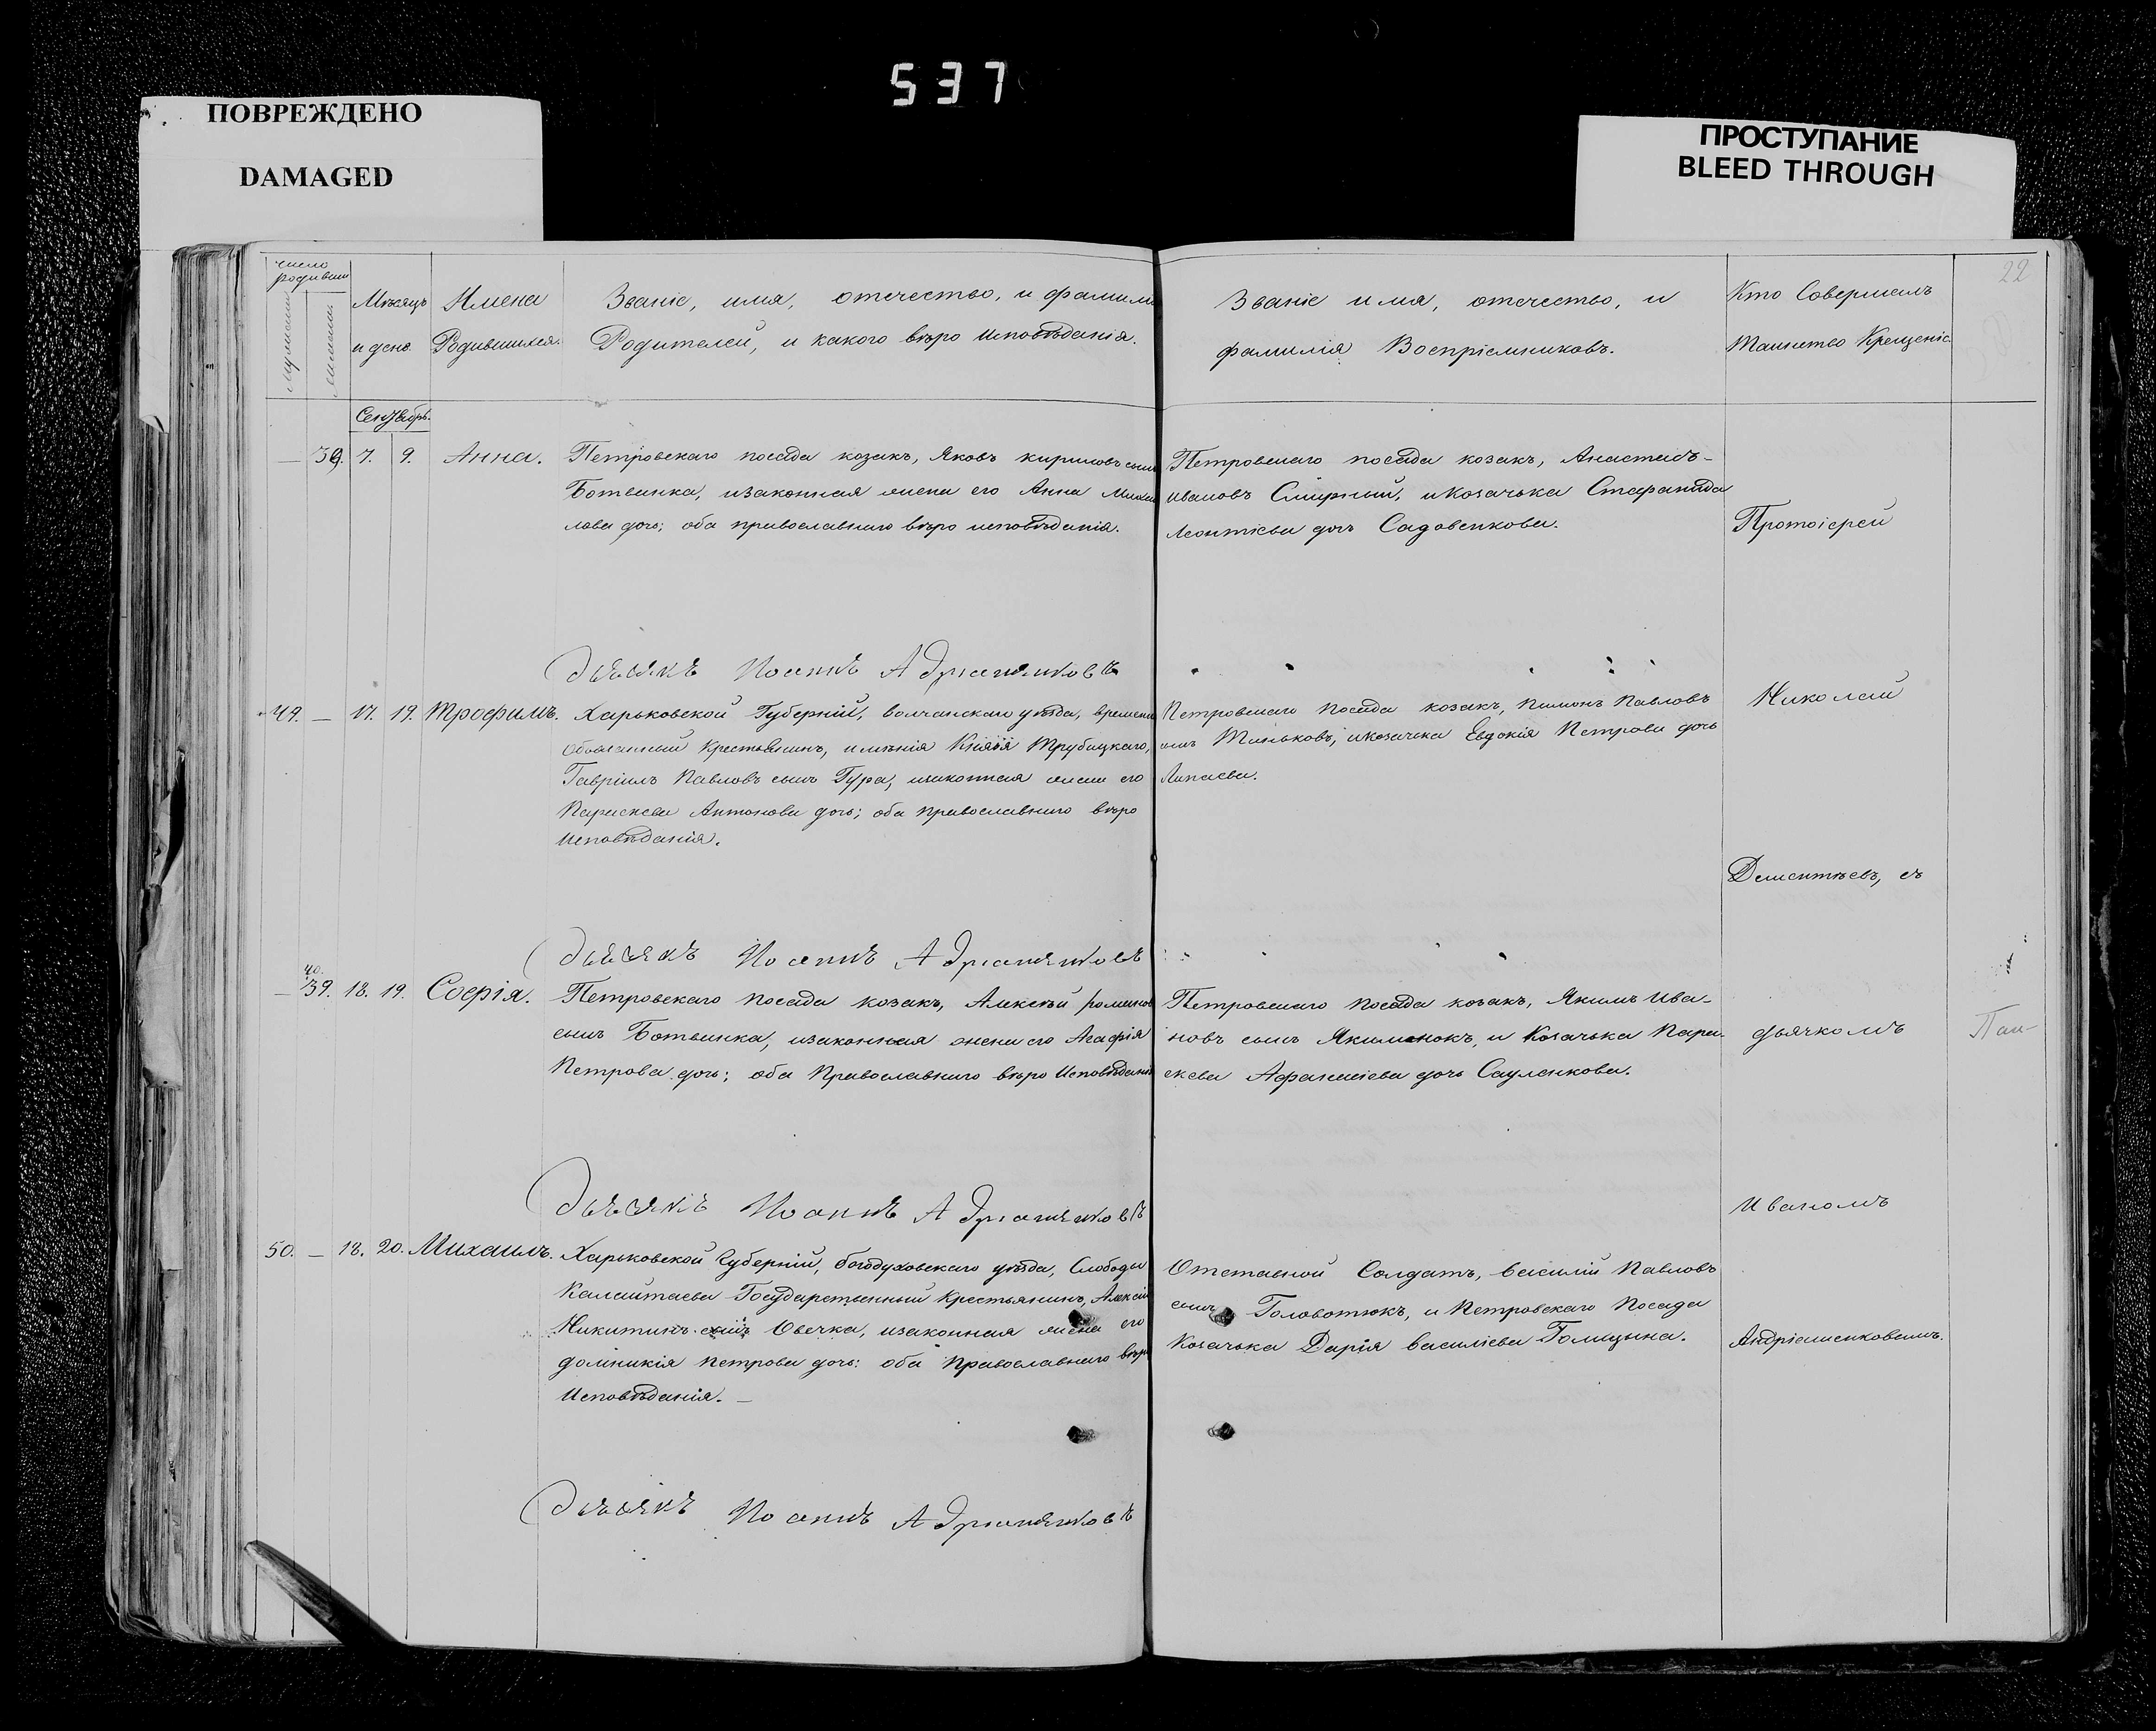 537
ПОВРЕЖДЕНО
DAMAGED
ПРОСТУПАНИЕ
BLEED THROUGH
22
число
родивши
мужеска
женска
Мѣсяцъ
и день
Имена
Родившихся.
Званіе, имя, отечество, и фамилі
Родителей, и какого вѣро исповѣданія.
Званіе имя, отечество, и
фамилія Воспріемниковъ.
Кто Совершалъ
таинство Крещеніе
Сентябрь.
— 39. 7. 9. Анна.
Петровскаго посада козакъ, Яковъ кириловъ сынъ
Ботвинка, изаконная жена его Анна Михаи
лова дочь; оба православнаго вѣро исповѣданія.
Петровскаго посада козакъ, Анастасъ-
ивановъ Смирный, и козачька Стефанида
Леонтіева дочь Садовенкова.
Протоіерей
дьячякъ Иоаннъ Адрианяшковъ
49. — 17. 19. Трофимъ.
Харьковской Губерній, волчанскаго уѣзда, временно
обязанный крестьянинъ, имѣнія Князя Трубицкаго,
Гавріилъ Павловъ сынъ Гура, изаконная жена его
Парискева Антонова дочь; оба православнаго вѣро
исповѣданія.
Петровскаго посада козакъ, Пимонъ Павловъ
сынъ Тиньковъ, и козачька Евдокія Петрова дочь
Липаева.
Николай
Дементьевъ, съ
дьячякъ Иоаннъ Адрианяшковъ
40.
— 39. 18. 19. Софія.
Петровскаго посада козакъ, Алексѣй романов
сынъ Ботвинка, изаконная жена его Агафія
Петрова дочь; оба Православнаго вѣро исповѣданія
Петровскаго посада козакъ, Якимъ Ива-
новъ сынъ Якименокъ, и Козачька Пари-
скева Афанасіева дочь Сауленкова.
дьячкомъ
Пан-
дьячякъ Иоаннъ Адрианяшковъ
Иваномъ
50. — 18. 20. Михаилъ.
Харьковской Губерній, богодуховскаго уѣзда, Слободы
Калантаева Государственный крестьянинъ, Алексѣй
Никитинъ сынъ Овечка, изаконная жена его
домникія петрова дочь: оба православнаго вѣро
Исповѣданія. —
Отставной Солдатъ, василій Павловъ
сынъ Головотюкъ, и петровскаго посада
козачька Дарія василіева Голицына.
Андріашенковымъ.
дьячякъ Иоаннъ Адрианяшковъ